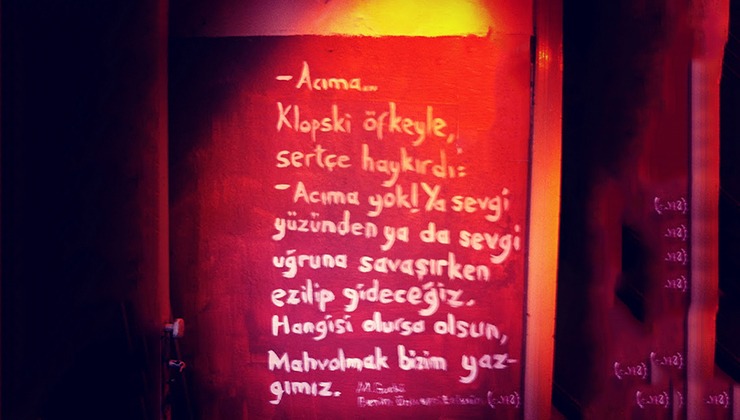 -Acıma...
Klopski öfkeyle,
sertçe haykırdı:
-Acıma yok! Ya sevgi
yüzünden ya da sevgi
uğruna savaşırken
ezilip gideceğiz.
Hangisi olursa olsun,
Mahvolmak bizim yaz-
gımız.
M. Gorki
Benim